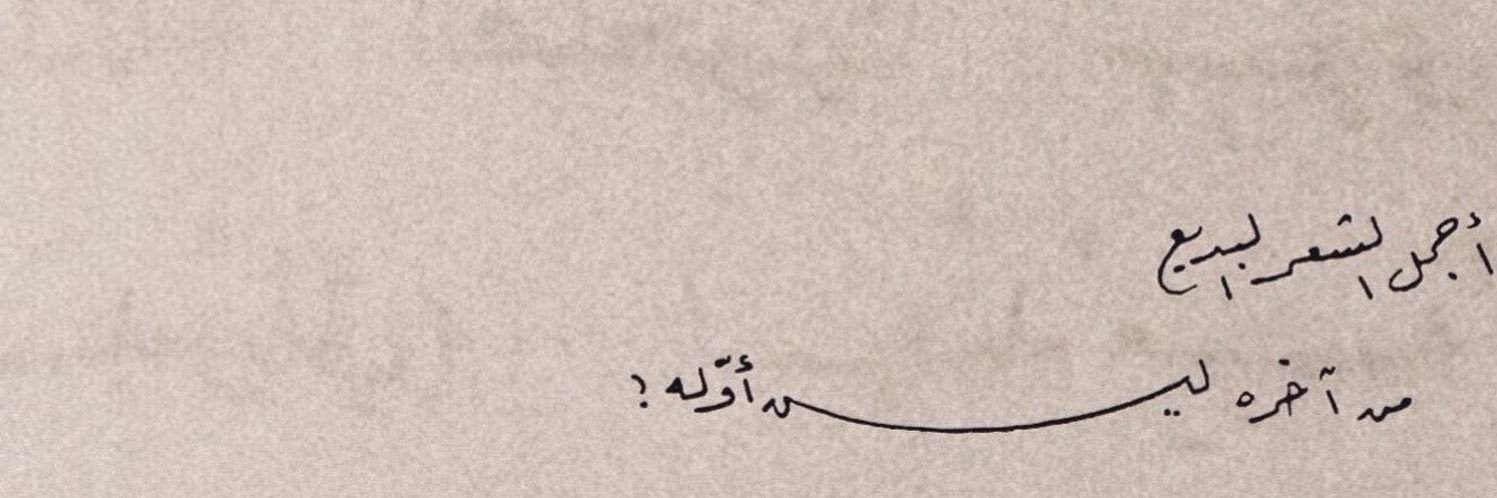 أجمل الشعر البديع
من آخره ليس أوّله ؟